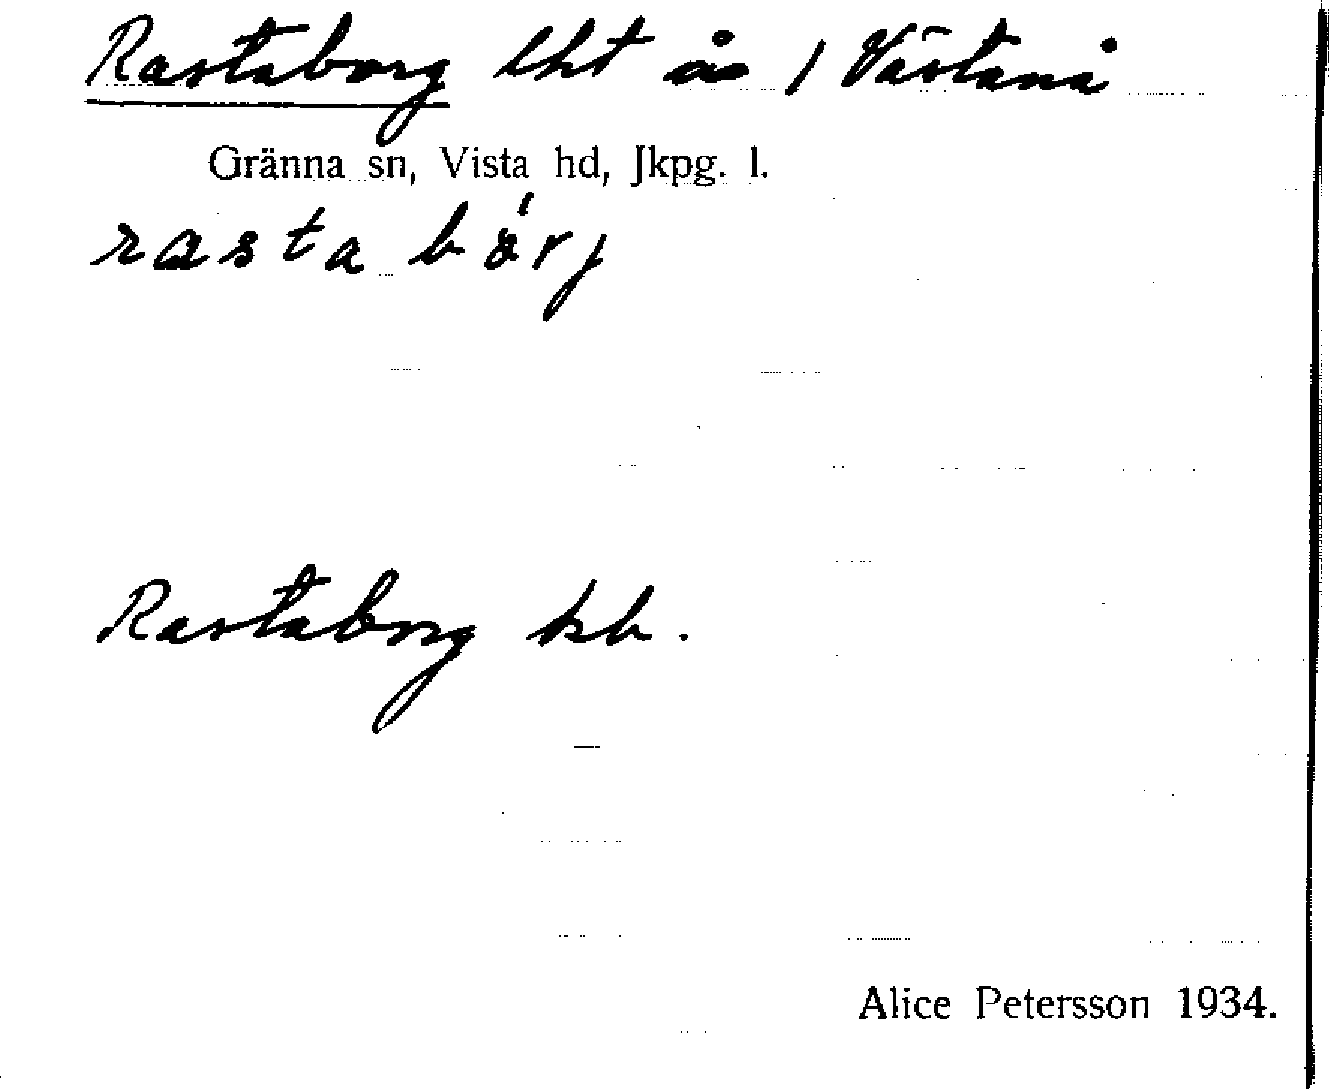 Rastaborg lht å / Västanå
Gränna sn, Vista hd, Jkpg. l.
rasta bårj
Rastaborg kb.
Alice Petersson 1934.